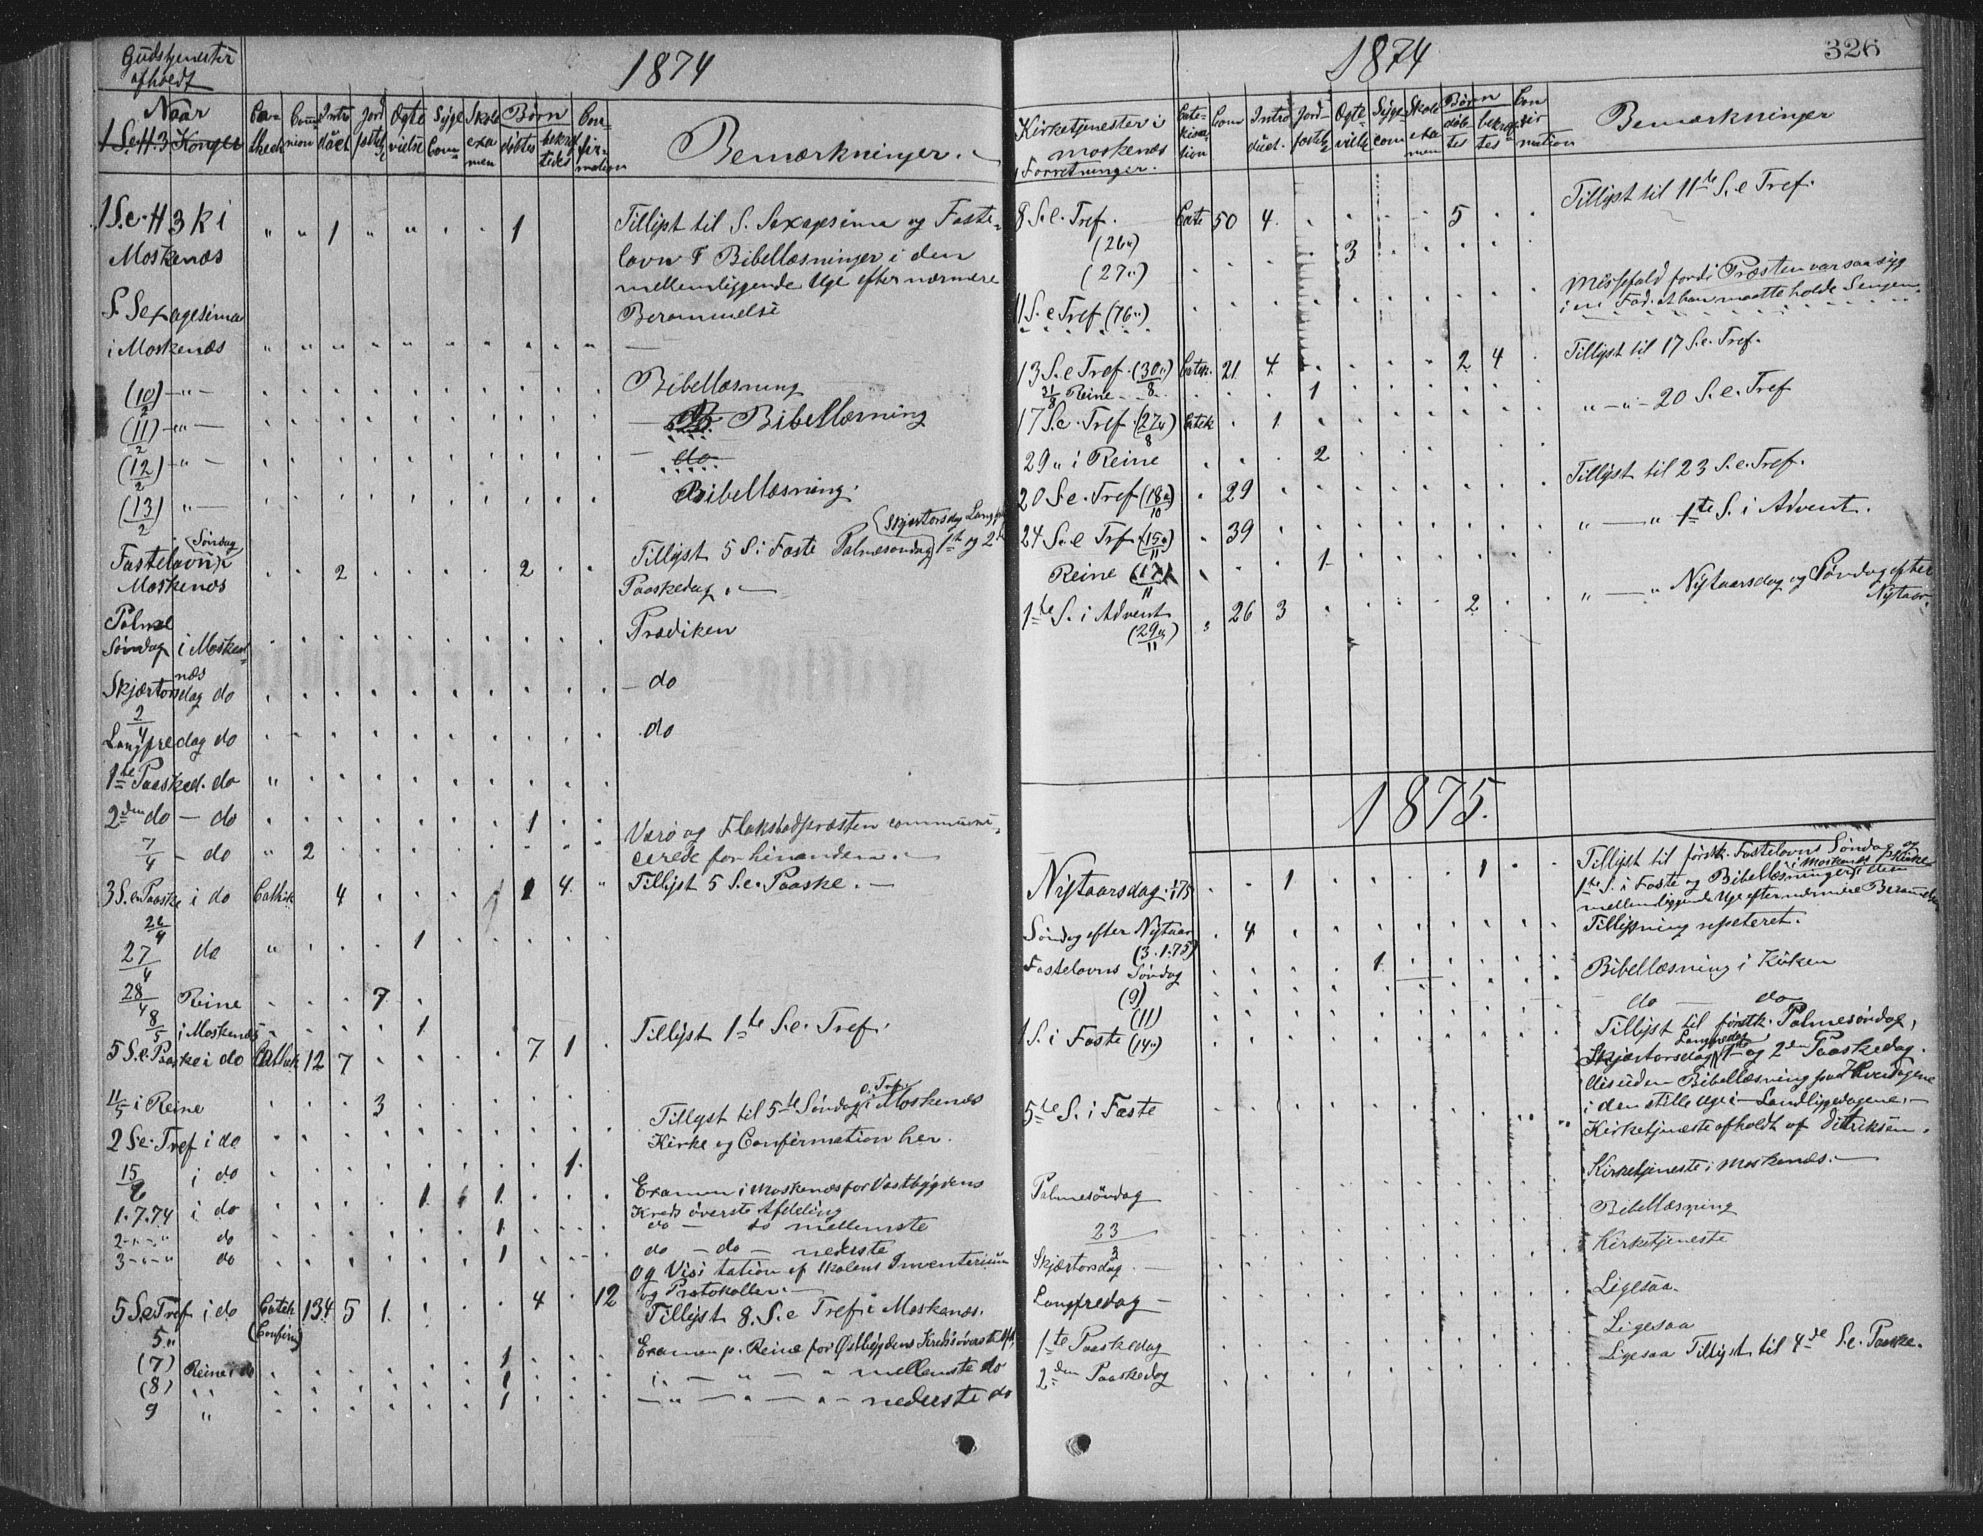 Gudstjenester
afholdt
1874
Naar
1 S.e.H.3 Konger
Cate- Com- Intro Jord Egte Syge Skole Børn Con-
theck nion duct fæstelse vielse Com- exa men døbte bekræftelse fir- mation
Bemærkninger.
1 S.e. H 3 K i " " 1 " " 1 Tillyst til S. Sexagesima og Faste-
Moskenæs lavn & Bibellæsninger i den
mellemliggende Uge efter nærmere
S. Sexagesima Berammelse
i Moskenæs
(10/2) Bibellæsning
(11/2) Bibellæsning
(12/2) do
(13/2) Bibellæsning.
Søndag Skjærtorsdag Langfr
Fastelavn i 2 2 Tillyst 5 S. i Faste Palmesøndag 1ste og 2den
Moskenæs Paaskedag.
Palme
Søndag i Mosken Prædiken
næs
Skjærtorsdag do do
2/4
Langfredag do do
1ste Paasked. do
2den do - do 1
Værø og Flakstadpræsten communi-
7/4 - do " 2 cerede for hinanden.
3 S.e. Paaske i do Cathek 4 1 4 Tillyst 5 S.e. Paaske.
26/4
27/4 do 1
28/4 Reine 7
8/5 i Moskenæs 1 Tillyst 1ste S.e. Tref.
5 S.e. Paaske i do Cathek 12 7 7 1
e. Tref.
11/5 i Reine 3 Tillyst til 5te Søndag i Moskenæs
2 S.e. Tref i do Kirke og Confirmation her.
15/6 i do 1
1.7.74 i do 1 1 1 Examen i Moskenæs for Vestbygdens
Kreds øverste Afdeling
2 - " - " do 1 do - do mellemste
3 - " - " do 1 do - do - nederste
og Visitation af Skolens Inventarium
og Protokoller.
5 S.e Tref i do Catek 134 5 1 4 12 Tillyst 8. S.e Tref i Moskenæs.
5." (Confirm)
(7) Reine i do 1 Examen p. Reine for Østbygdens Kreds øverste Afd,
(8) " 1 mellemste do
9 " 1 nederste do
1874
326
Kirketjenester i
Moskenæs
Forretninger.
Cate- kisa tion Com Intro duct. Jord- fæstelse Egte- vielse Syge com Skole exa men Børn døb- tes bekræf tes Con fir mation
Bemærkninger
Tillyst til 11te S.e Tref.
8 S.e. Tref. Cate 50 4. 5
(26.)
(27.) 3
Missefald fordi Præsten var saa syg
i en Fod. at han maatte holde Sengen.
11 S.e Tref (16.)
13 S.e Tref. (30/8) Catek. 21 4 2 4 Tillyst til 17 S.e. Tref.
31/8 Reine 1
17 S.e. Tref (27/8) Catek 1 " - " - 20 S.e. Tref
29 " i Reine 2
20 S.e. Tref (18/10) 29 Tillyst til 23 S.e. Tref.
24 S.e Trf. (15/11) 39 " — " 1ste S. i Advent.
Reine (17/11) 1
1ste S. i Advent 26 3 2 " — " Nytaarsdag og Søndag efter
(29/11) Nytaar.
1875.
Nytaarsdag. 1/1 75 1 1 Tillyst til førstk. Fastelavns Søndag og
1ste S. i Faste og Bibellæsninger i Moskenæs Kirke i den
mellemliggende Uge efter nærmere Berammelse
Søndag efter Nytaar 4 Tillysning repeteret.
(3.1.75)
Fastelavns Søndag 1 Bibellæsning i Kirken
(9) do — do
(11)
1 S. i Faste (14.) Tillyst til førstk. Palmesøndag,
Langfredag
Skjærtorsdag 1ste og 2den Paaskedag.
desuden Bibellæsning paa Hverdagene
i den stille Uge i Landliggedagene.
5te S. i Faste Kirketjeneste afholdt af Ditriksen.
Palmesöndag Kirketjeneste i Moskenæs.
23/3 Bibellæsning
Skjærtorsdag. Kirketjeneste
Langfredag Ligesaa.
1ste Paaskedag Ligesaa
2den Paaskedag Ligesaa Tillyst til 4de S.e. Paaske.